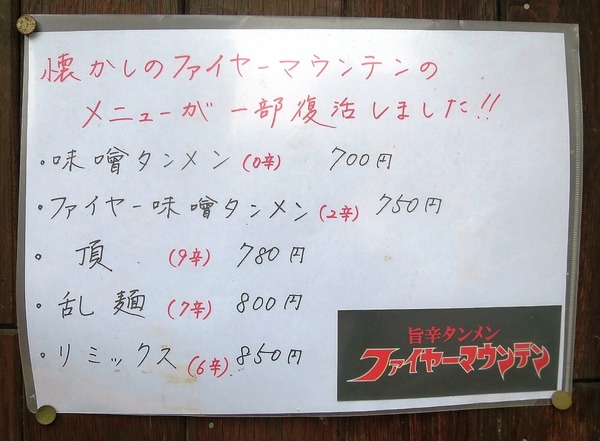 懐かしのファイヤーマウンテンの
メニューが一部復活しました!!
・味噌タンメン(0辛) 700円
・ファイヤー味噌タンメン(2辛) 750円
・頂(9辛) 780円
・乱麺(7辛) 800円
・リミックス(6辛) 850円
旨辛タンメン
ファイヤーマウンテン